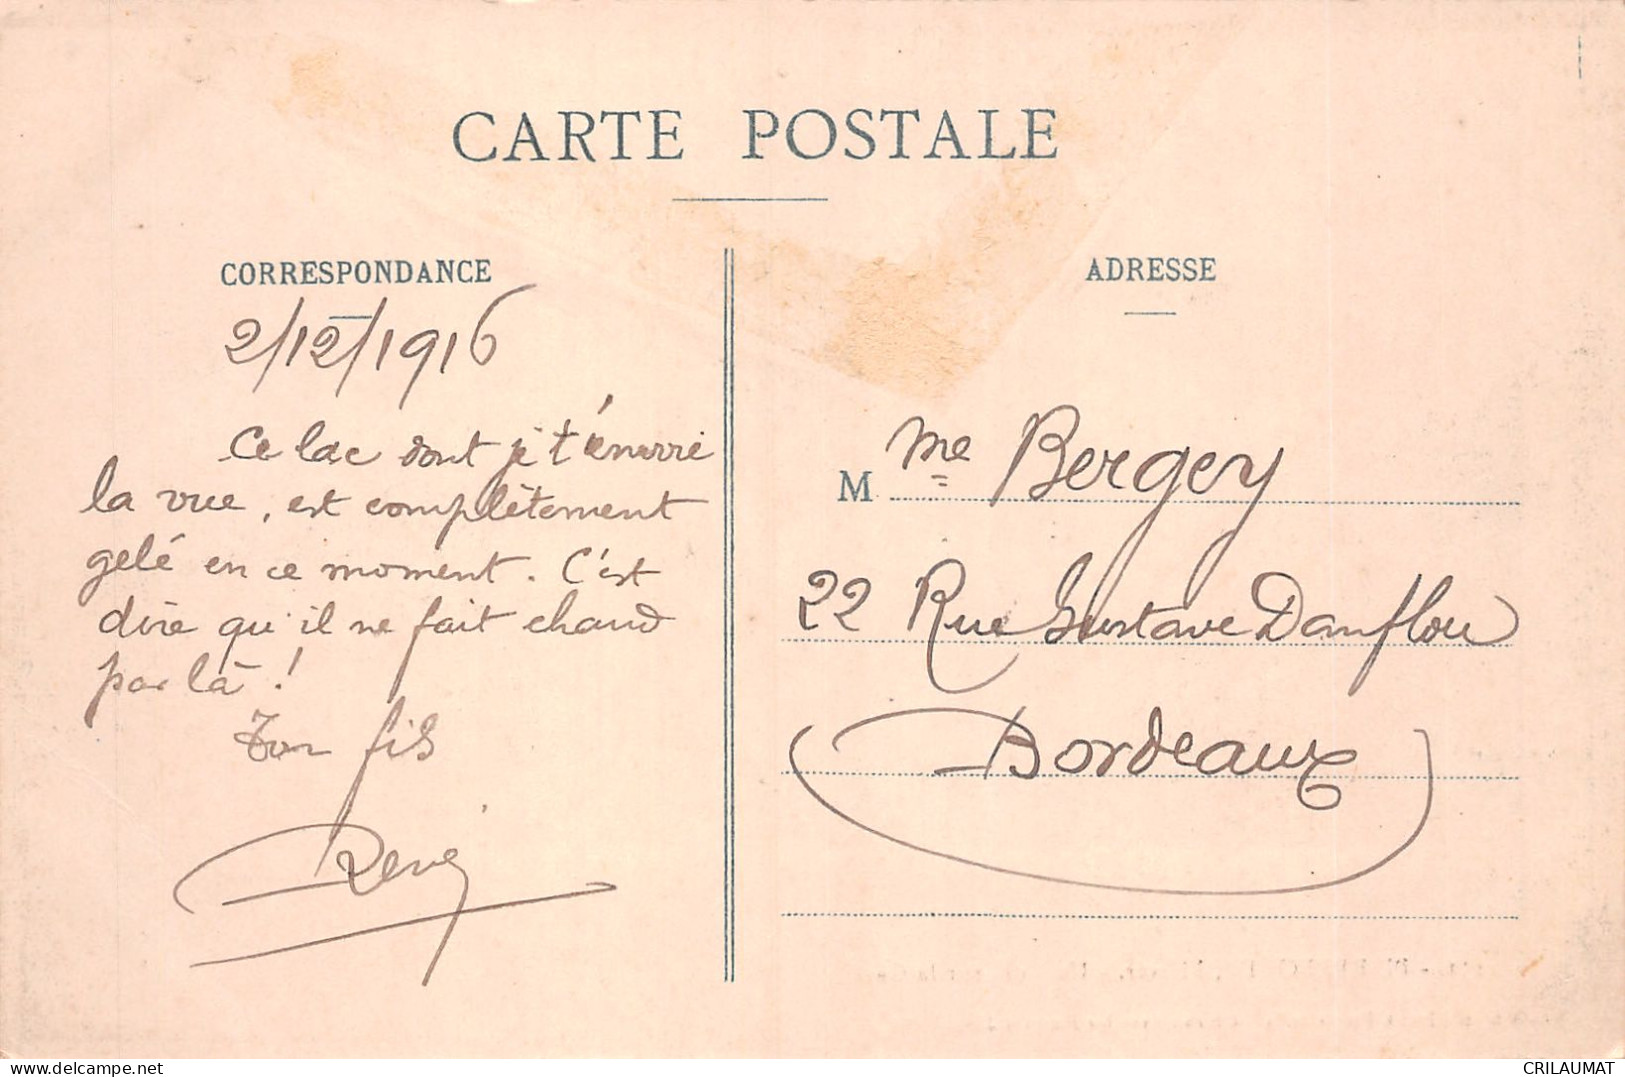 CARTE POSTALE
CORRESPONDANCE
2/12/1916
Ce lac dont je t'envoie
la vue, est complètement
gelé en ce moment. C'est
dire qu'il ne fait chaud
par là !
Ton fils
René
ADRESSE
M me Bergey
22 Rue Gustave Danflou
Bordeaux
CRILAUMAT